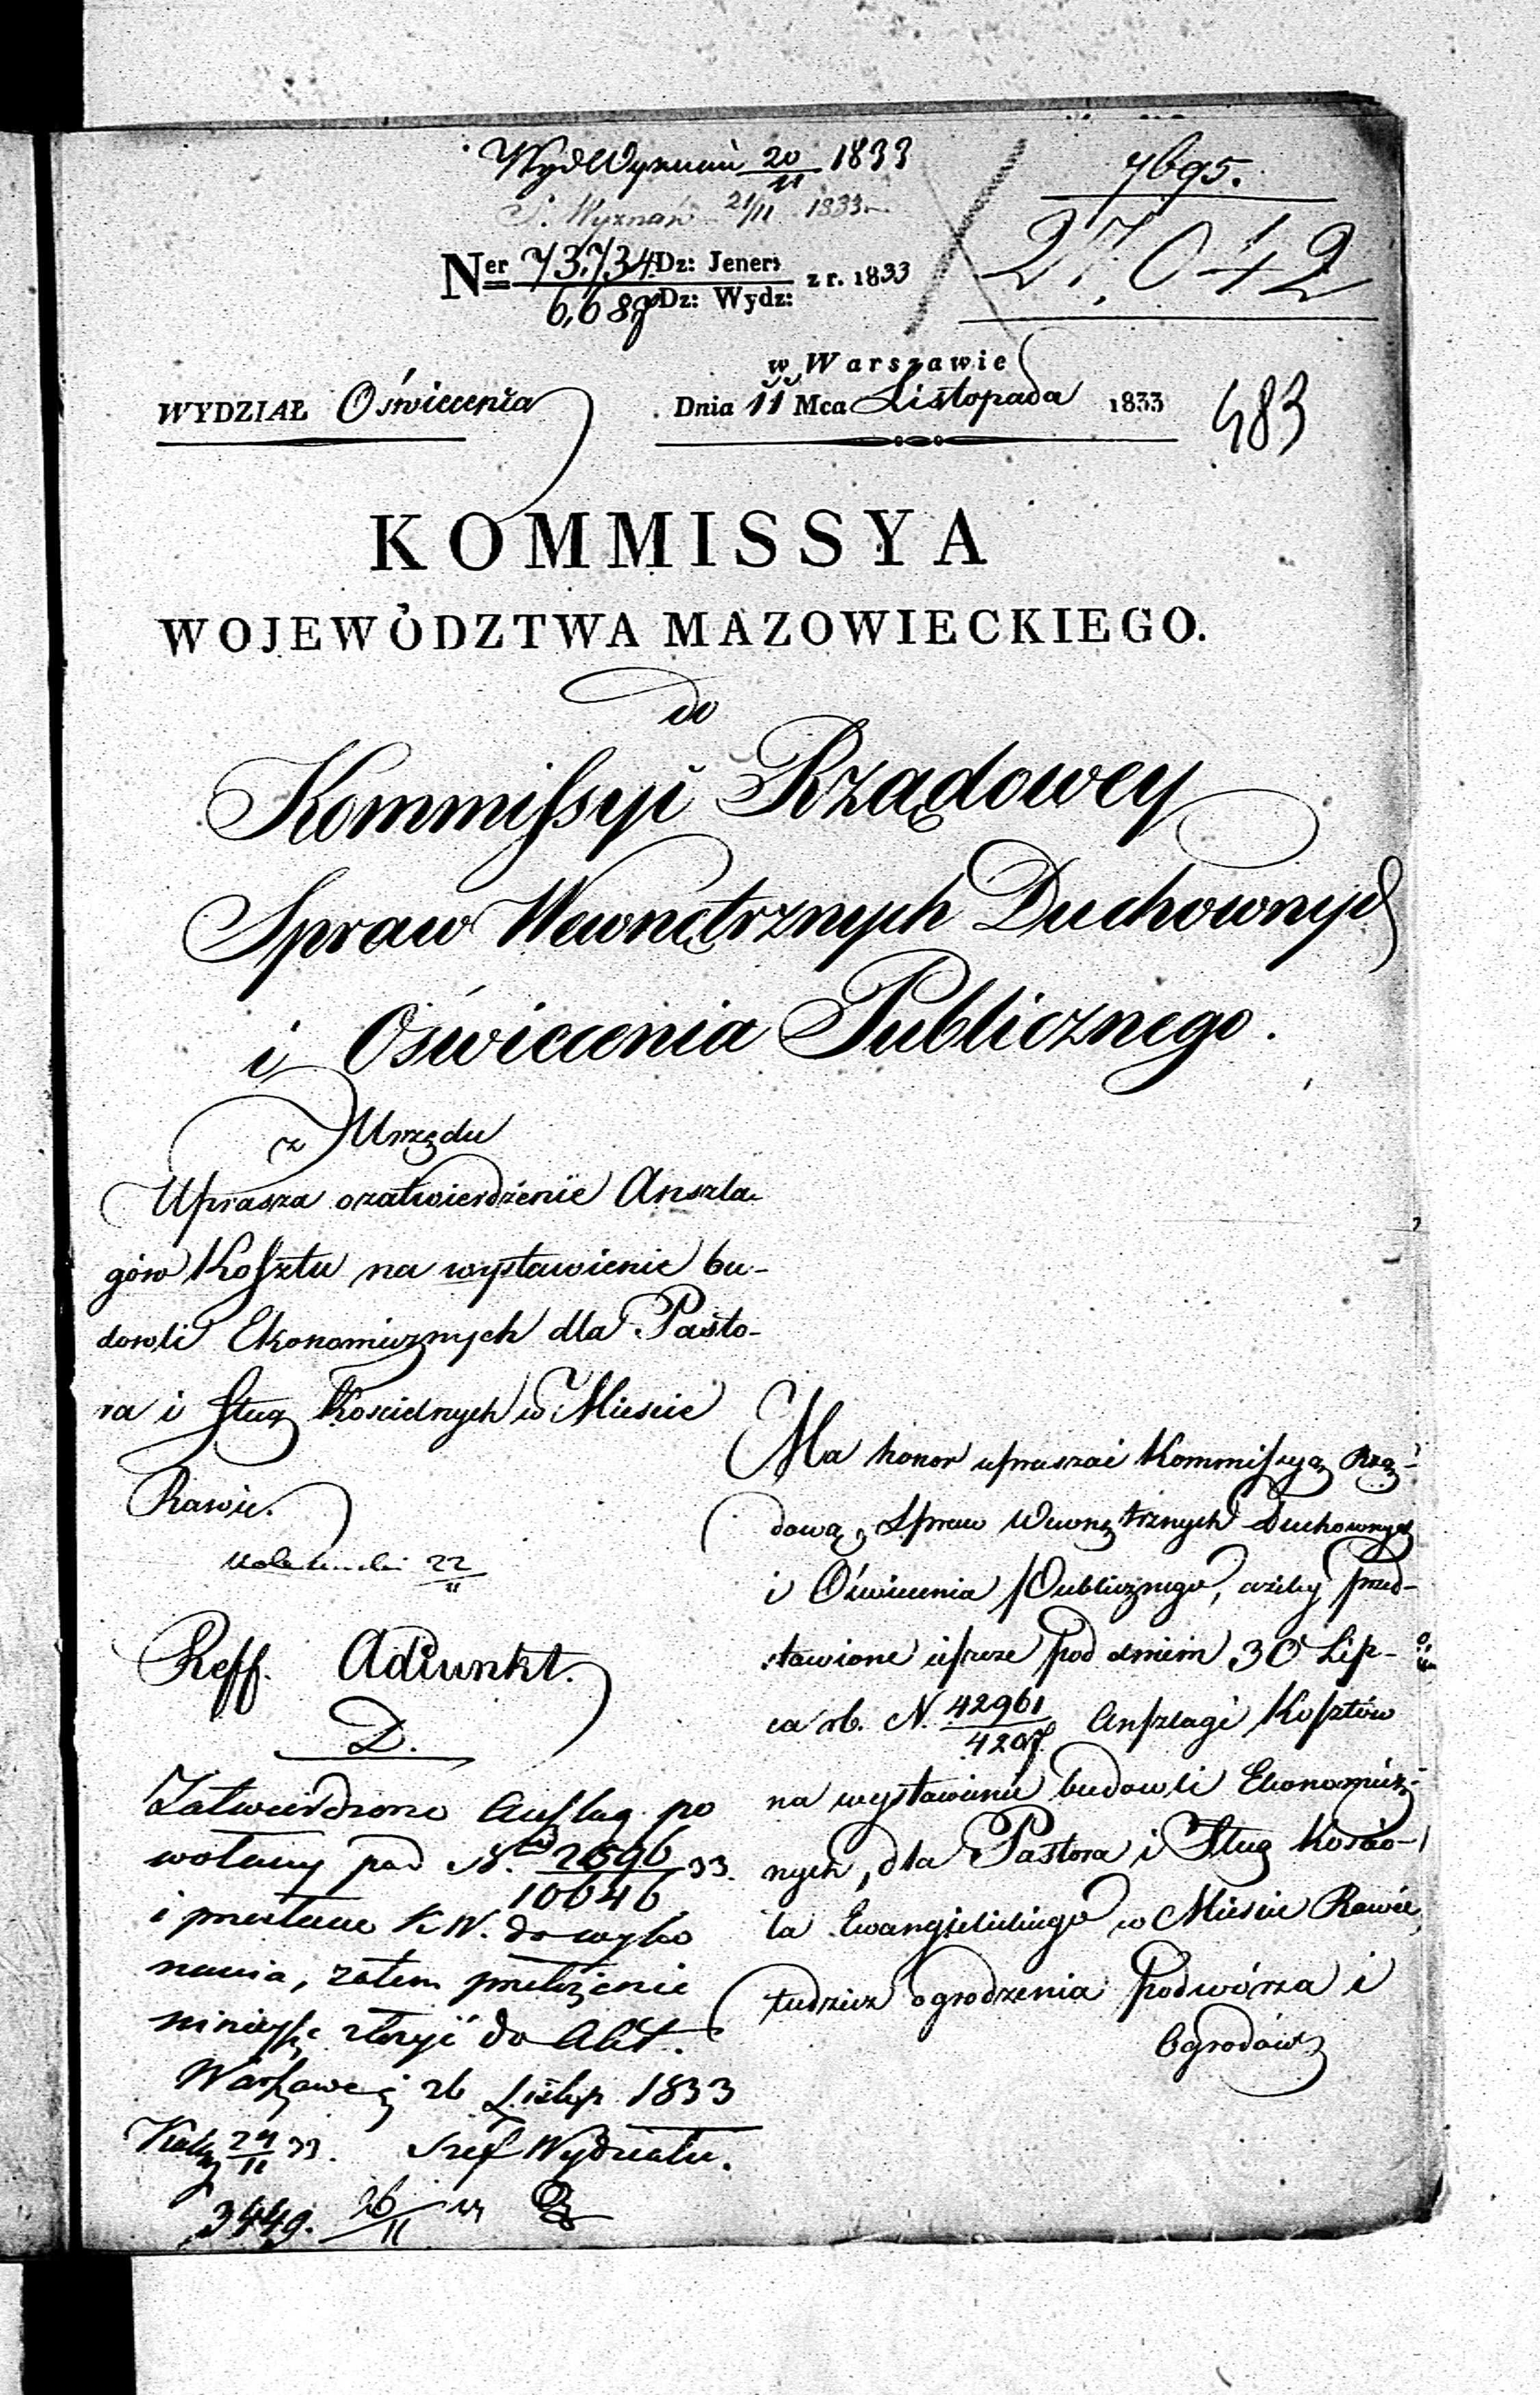 Wyd Wyznań 20/11 1833
S. Wyznań 21/11 1833
7695.
27,042
Ner 73,734 Dz: Jener: z r. 1833
6,687 Dz: Wydz:
w Warszawie
WYDZIAŁ Oświecenia
Dnia 11 Mca Listopada 1833
483
KOMMISSYA
WOJEWÓDZTWA MAZOWIECKIEGO.
do
Kommissyi Rządowey
Spraw Wewnętrznych Duchownych
i Oświecenia Publicznego.
z Urzędu
Uprasza o zatwierdzenie Anszla-
gów Kosztu na wystawienie bu-
dowli Ekonomicznych dla Pasto-
ra i sług Kościelnych w Mieście
Rawie.
22/11
Reff. Adiunkt.
D.
Zatwierdzono Anszlag po
wołany pod N. 33.
10646
i przesłano K W. do wyko
nania, zatem przełożenie
ninieysze złożyć do Akt.
Warszawa d 26 Listop 1833
24/11 33. Szef Wydziału.
3449. 26/11
Ma honor upraszać Kommissyą Rzą-
dową Spraw Wewnętrznych Duchownych
i Oświecenia Publicznego, ażeby przed-
stawione iescze pod dniem 30 Lip-
ca rb. N. 42961/4207 Anszlagi Kosztów
na wystawienie budowli Ekonomicz-
nych, dla Pastora i Sług Kościo-
ła Ewangielickiego w Mieście Rawie,
tudzież ogrodzenia podwórza i
Ogrodów